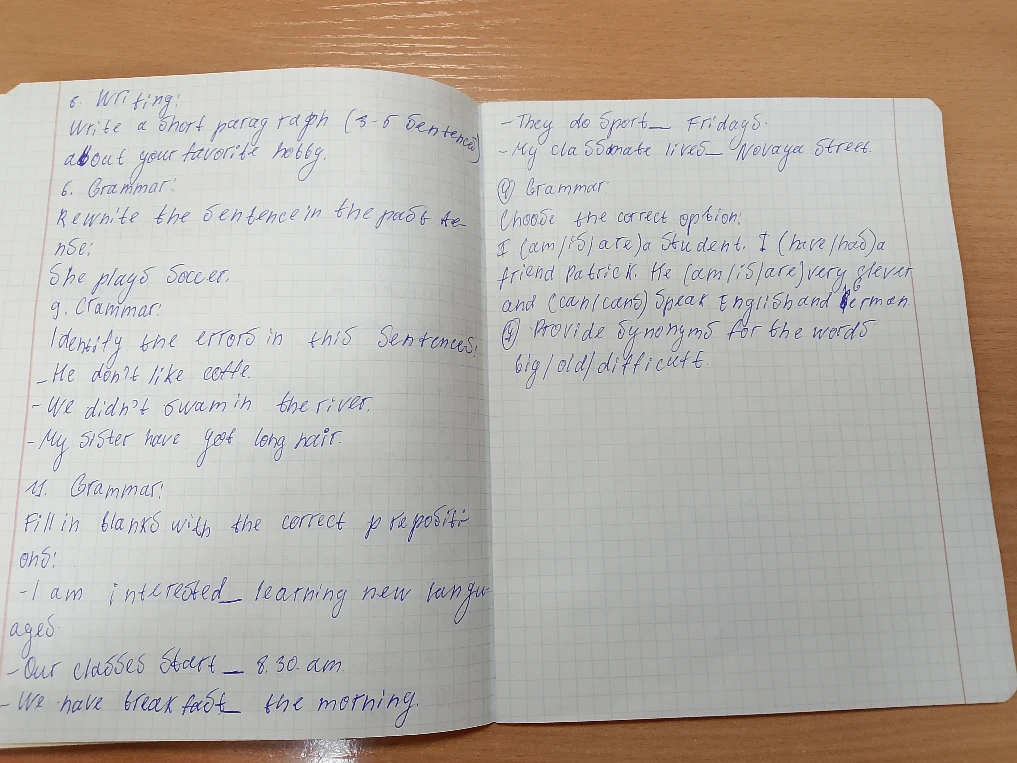 6. Writing:
Write a short paragraph (3-5 sentences)
about your favorite hobby.
6. Grammar:
Rewrite the sentence in the past te-
nse:
She plays soccer.
9. Grammar:
Identify the errors in this sentences:
- He don't like coffe.
- We didn't swam in the river.
- My sister have got long hair.
11. Grammar:
Fill in blanks with the correct prepositi-
ons:
- I am interested_ learning new langu-
ages
- Our classes start_ 8.30. am
- We have breakfast_ the morning.
- They do sport_ Fridays.
- My classmate lives_ Novaya Street.
Grammar:
Choose the correct option:
I (am/is/are) a student. I (have/has) a
friend Patrick. He (am/is/are) very clever
and (can/cans) speak English and German
Provide synonyms for the words
big/old/difficult.